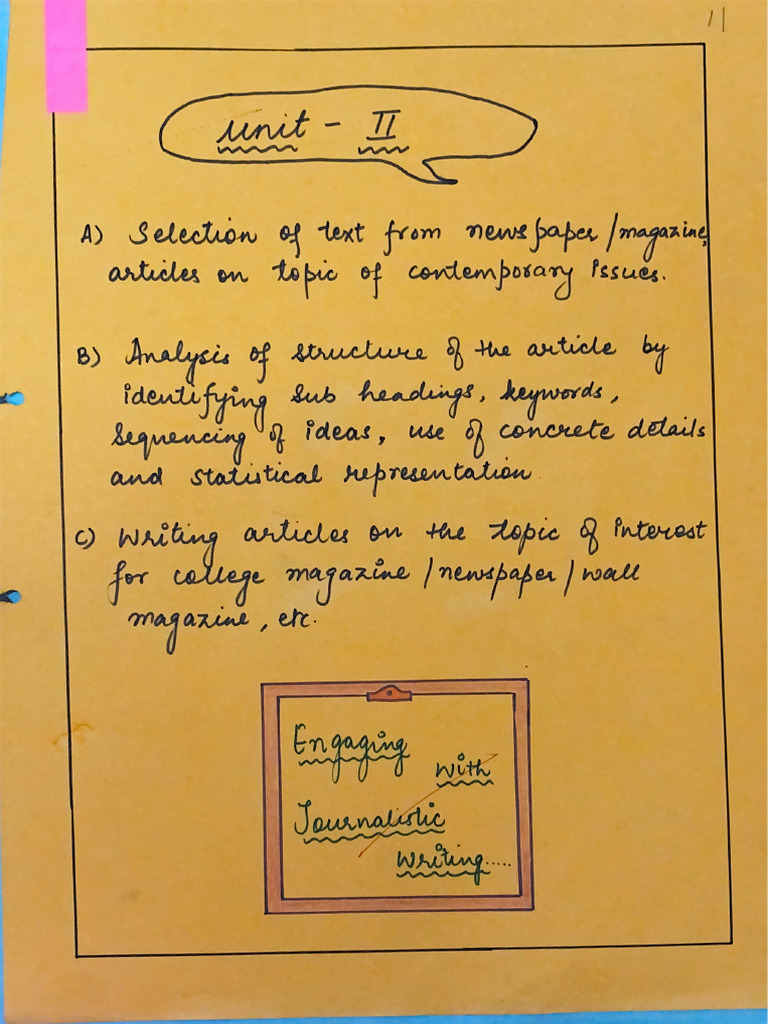 11
Unit - II
A) Selection of text from newspaper/magazine,
articles on topic of contemporary issues.
B) Analysis of structure of the article by
identifying Sub headings, keywords,
Sequencing of ideas, use of concrete details
and statistical representation
C) Writing articles on the topic of interest
for college magazine/newspaper/wall
magazine, etc.
Engaging
with
Journalistic
writing.....